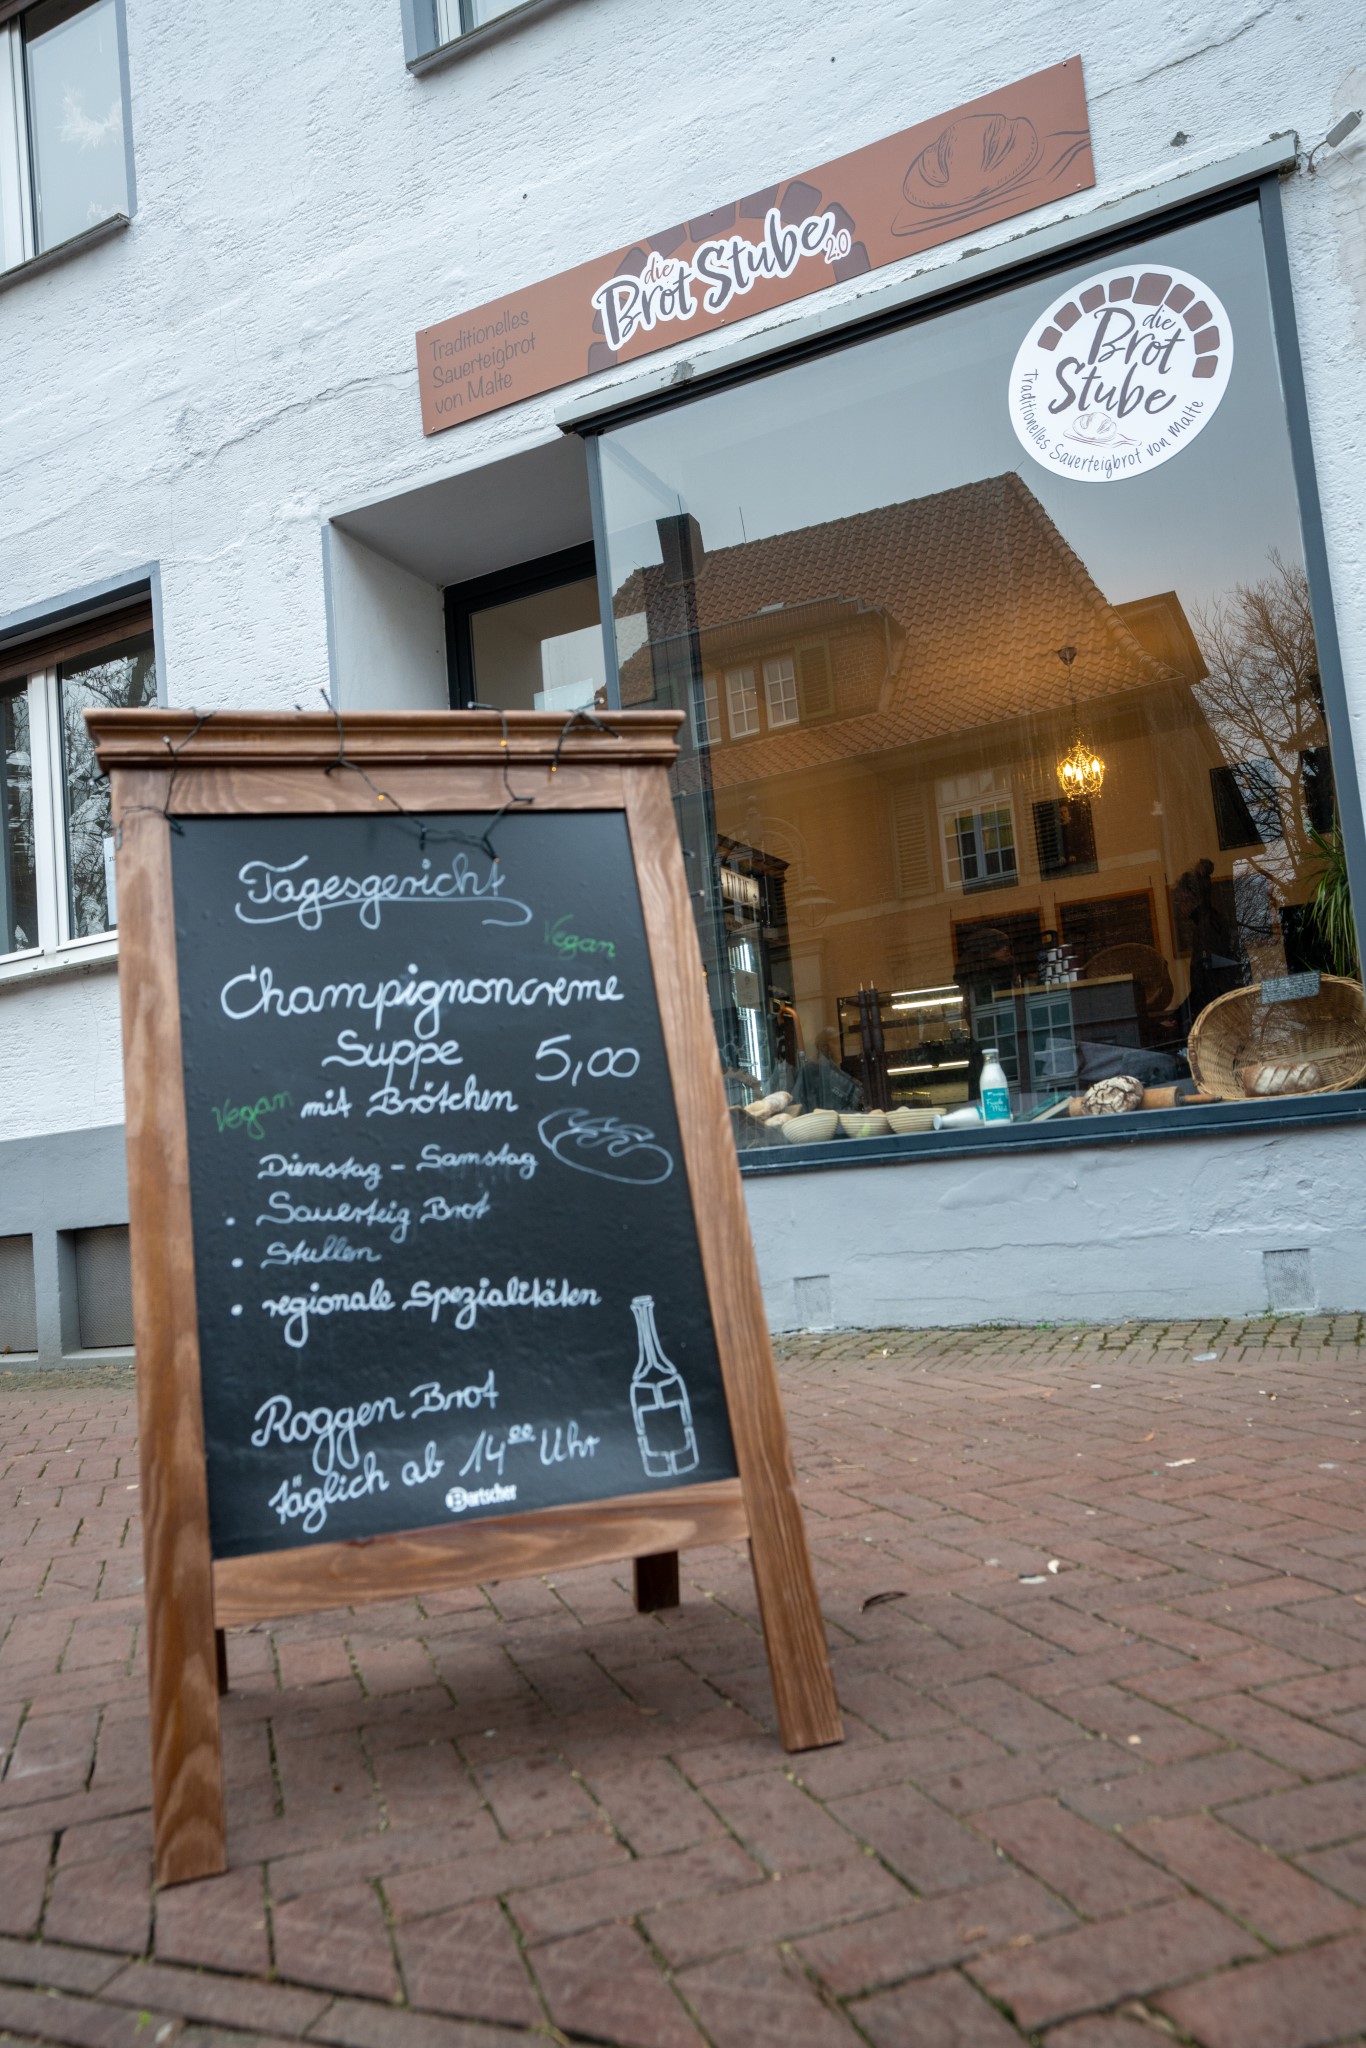 Traditionelles
Sauerteigbrot
von Malte
die
Brot Stube 2.0
die
Brot
Stube
Traditionelles Sauerteigbrot von Malte
Tagesgericht
Vegan
Champignoncreme
Suppe 5,00
Vegan mit Brötchen
Dienstag - Samstag
• Sauerteig Brot
• Stullen
• regionale Spezialitäten
Roggen Brot
täglich ab 14⁰⁰ Uhr
Bartscher